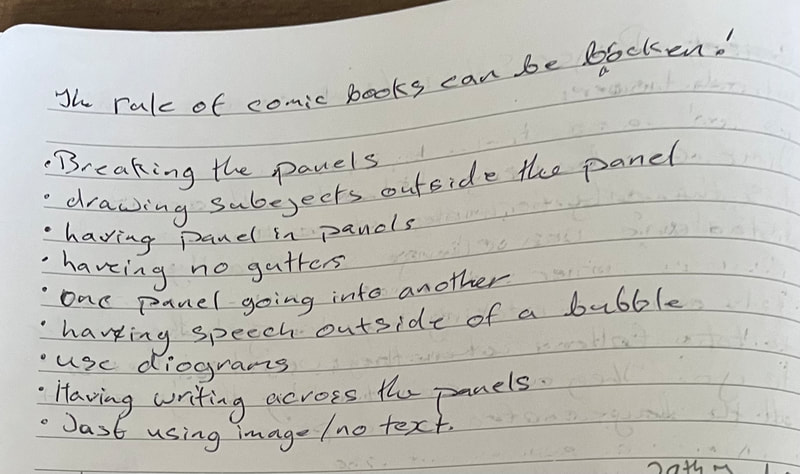 The rule of comic books can be bocken!
• Breaking the panels
• drawing subejects outside the panel
• having panel in panels
• haveing no gutters
• one panel going into another
• having speech outside of a bubble
• use diograms
• Having writing across the panels.
• Just using image/no text.